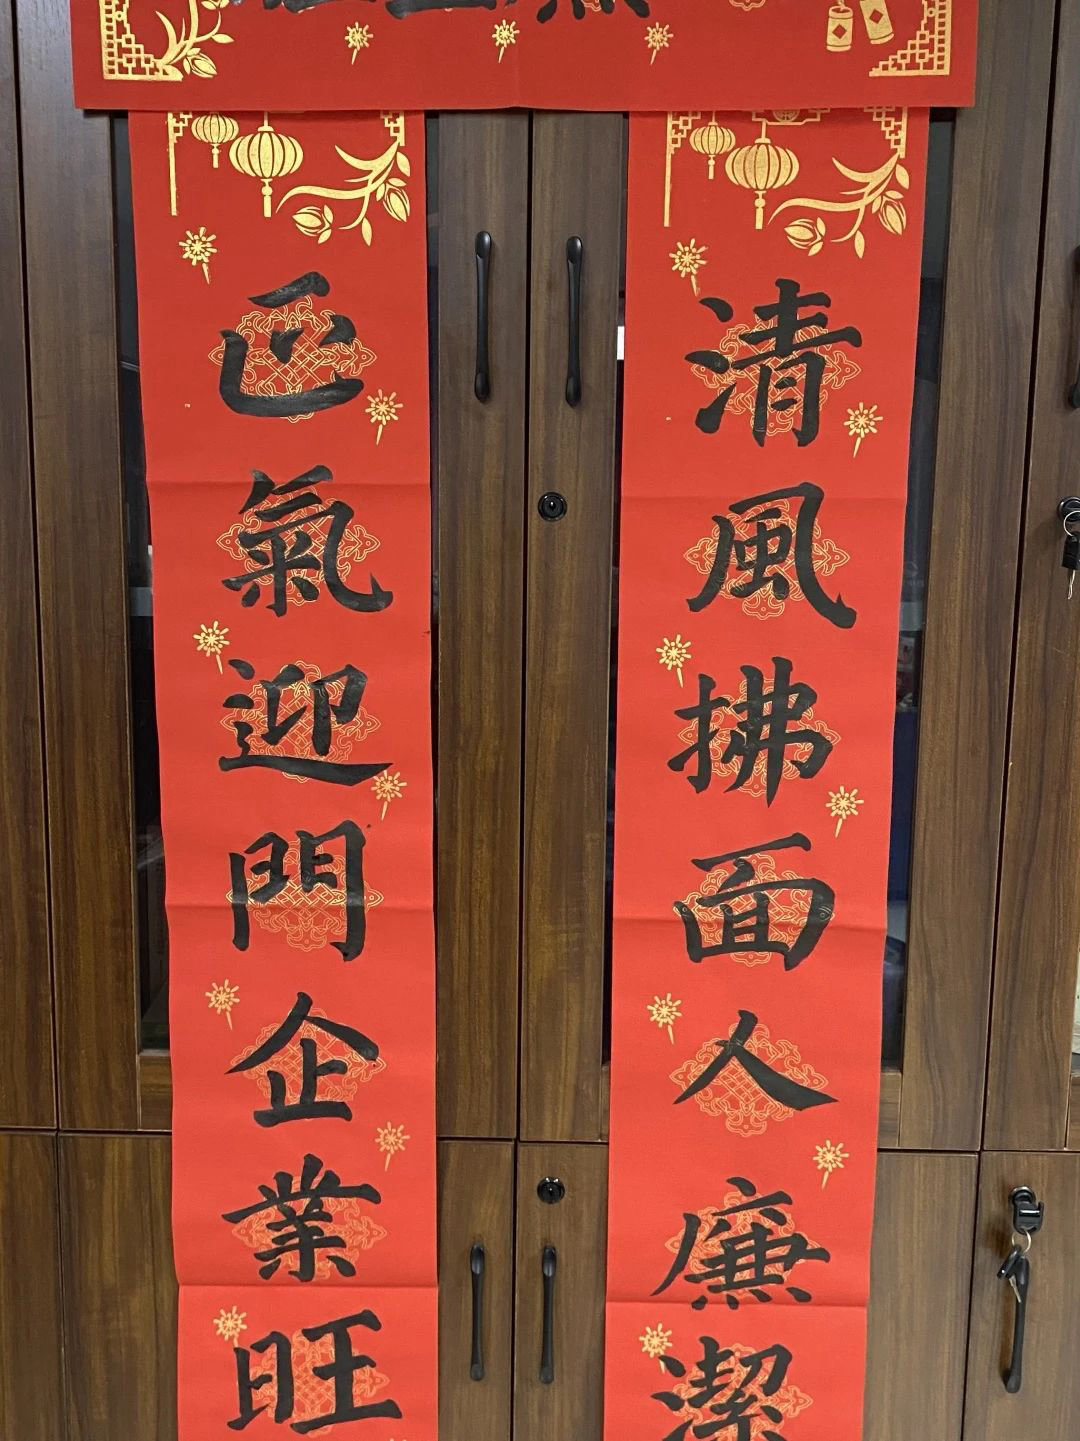 清風拂面人廉潔
正氣迎門企業旺